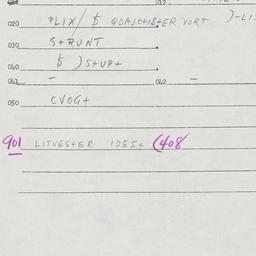 020 PLIX/ $ QDAJCHISTER VORT )-LI
030 S+RUNT
040 $ )S+UP+
042 - 042 -
050 CVOG+
901 LITVESTER IDES+ (408